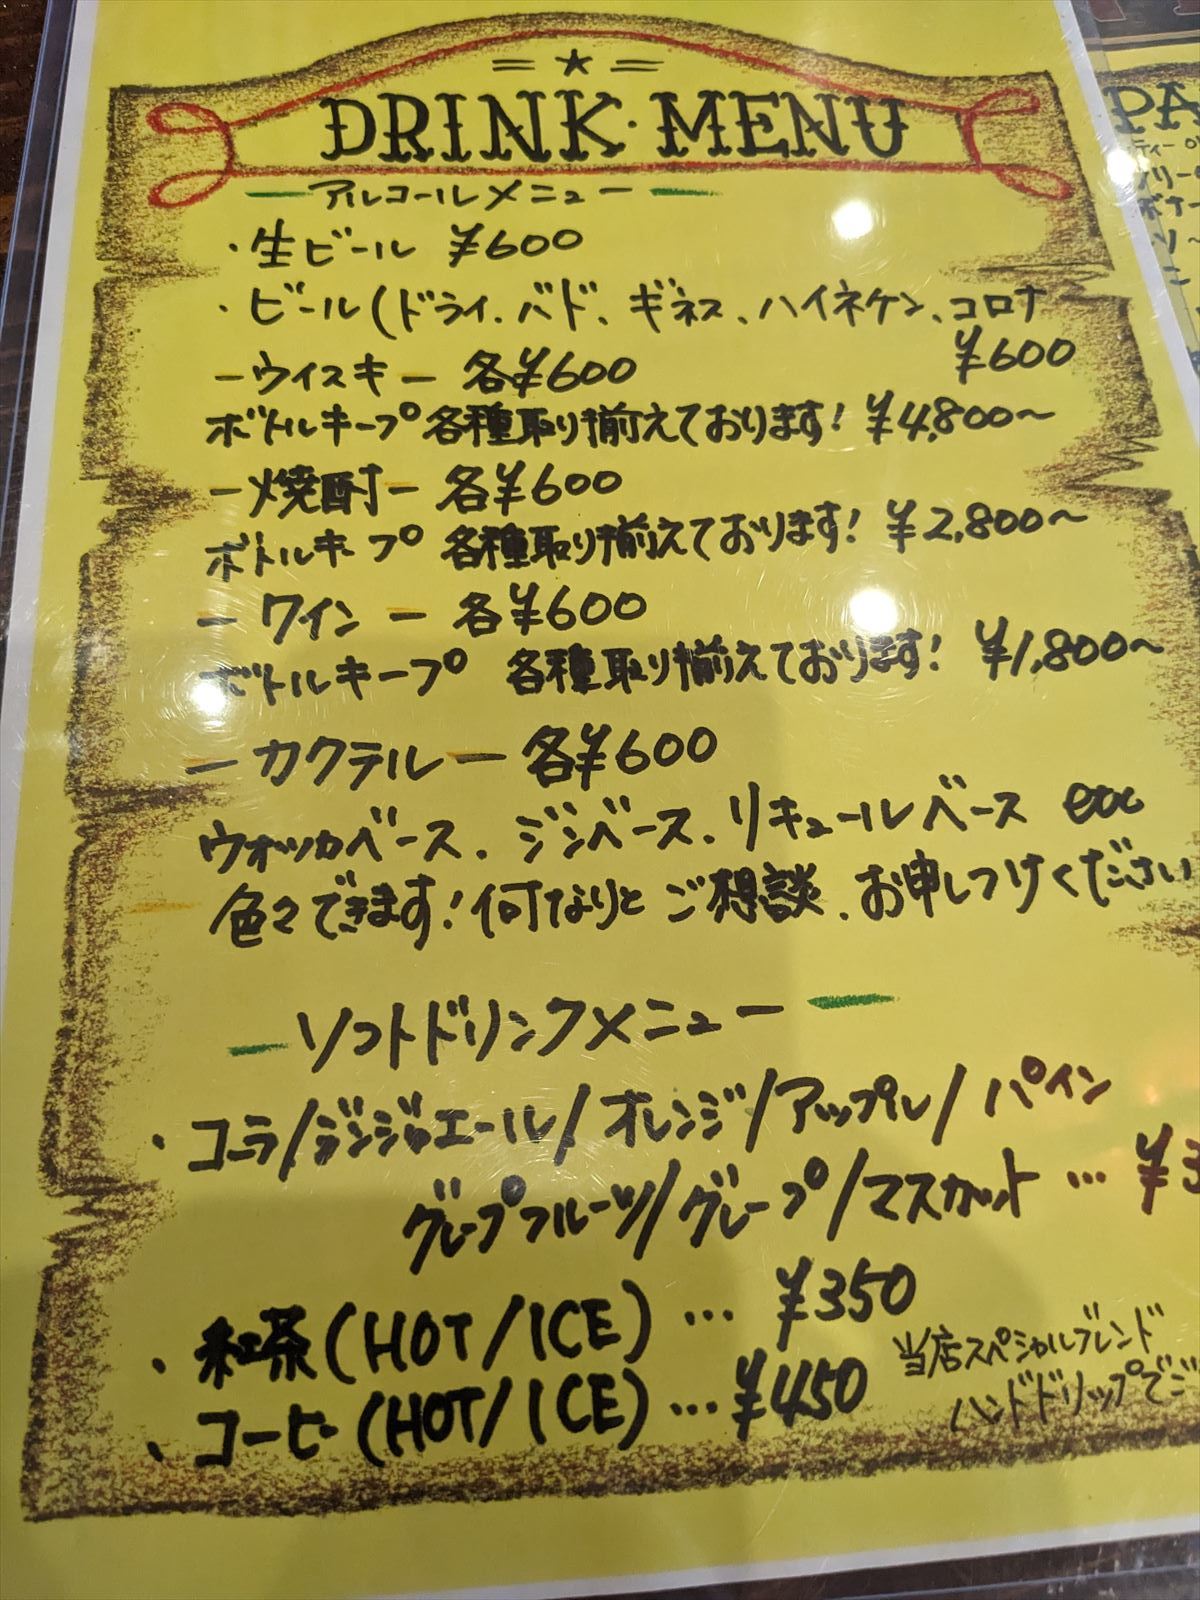 = ★ =
DRINK・MENU
アルコールメニュー
・生ビール ¥600
・ビール(ドライ、バド、ギネス、ハイネケン、コロナ
¥600
ーウイスキー 各¥600
ボトルキープ 各種取り揃えております! ¥4,800〜
ー焼酎ー 各¥600
ボトルキープ 各種取り揃えております! ¥2,800〜
ーワインー 各¥600
ボトルキープ 各種取り揃えております! ¥1,800〜
ーカクテルー 各¥600
ウォッカベース、ジンベース、リキュールベース etc
色々できます!何なりとご想談、お申しつけください
ーソフトドリンクメニューー
・コーラ/ジンジャエール/オレンジ/アップル/パイン
グレープフルーツ/グレープ/マスカット … ¥3
・紅茶(HOT/ICE) … ¥350
・コーヒー(HOT/ICE) … ¥450
当店スペシャルブレンド
ハンドドリップでご
PA